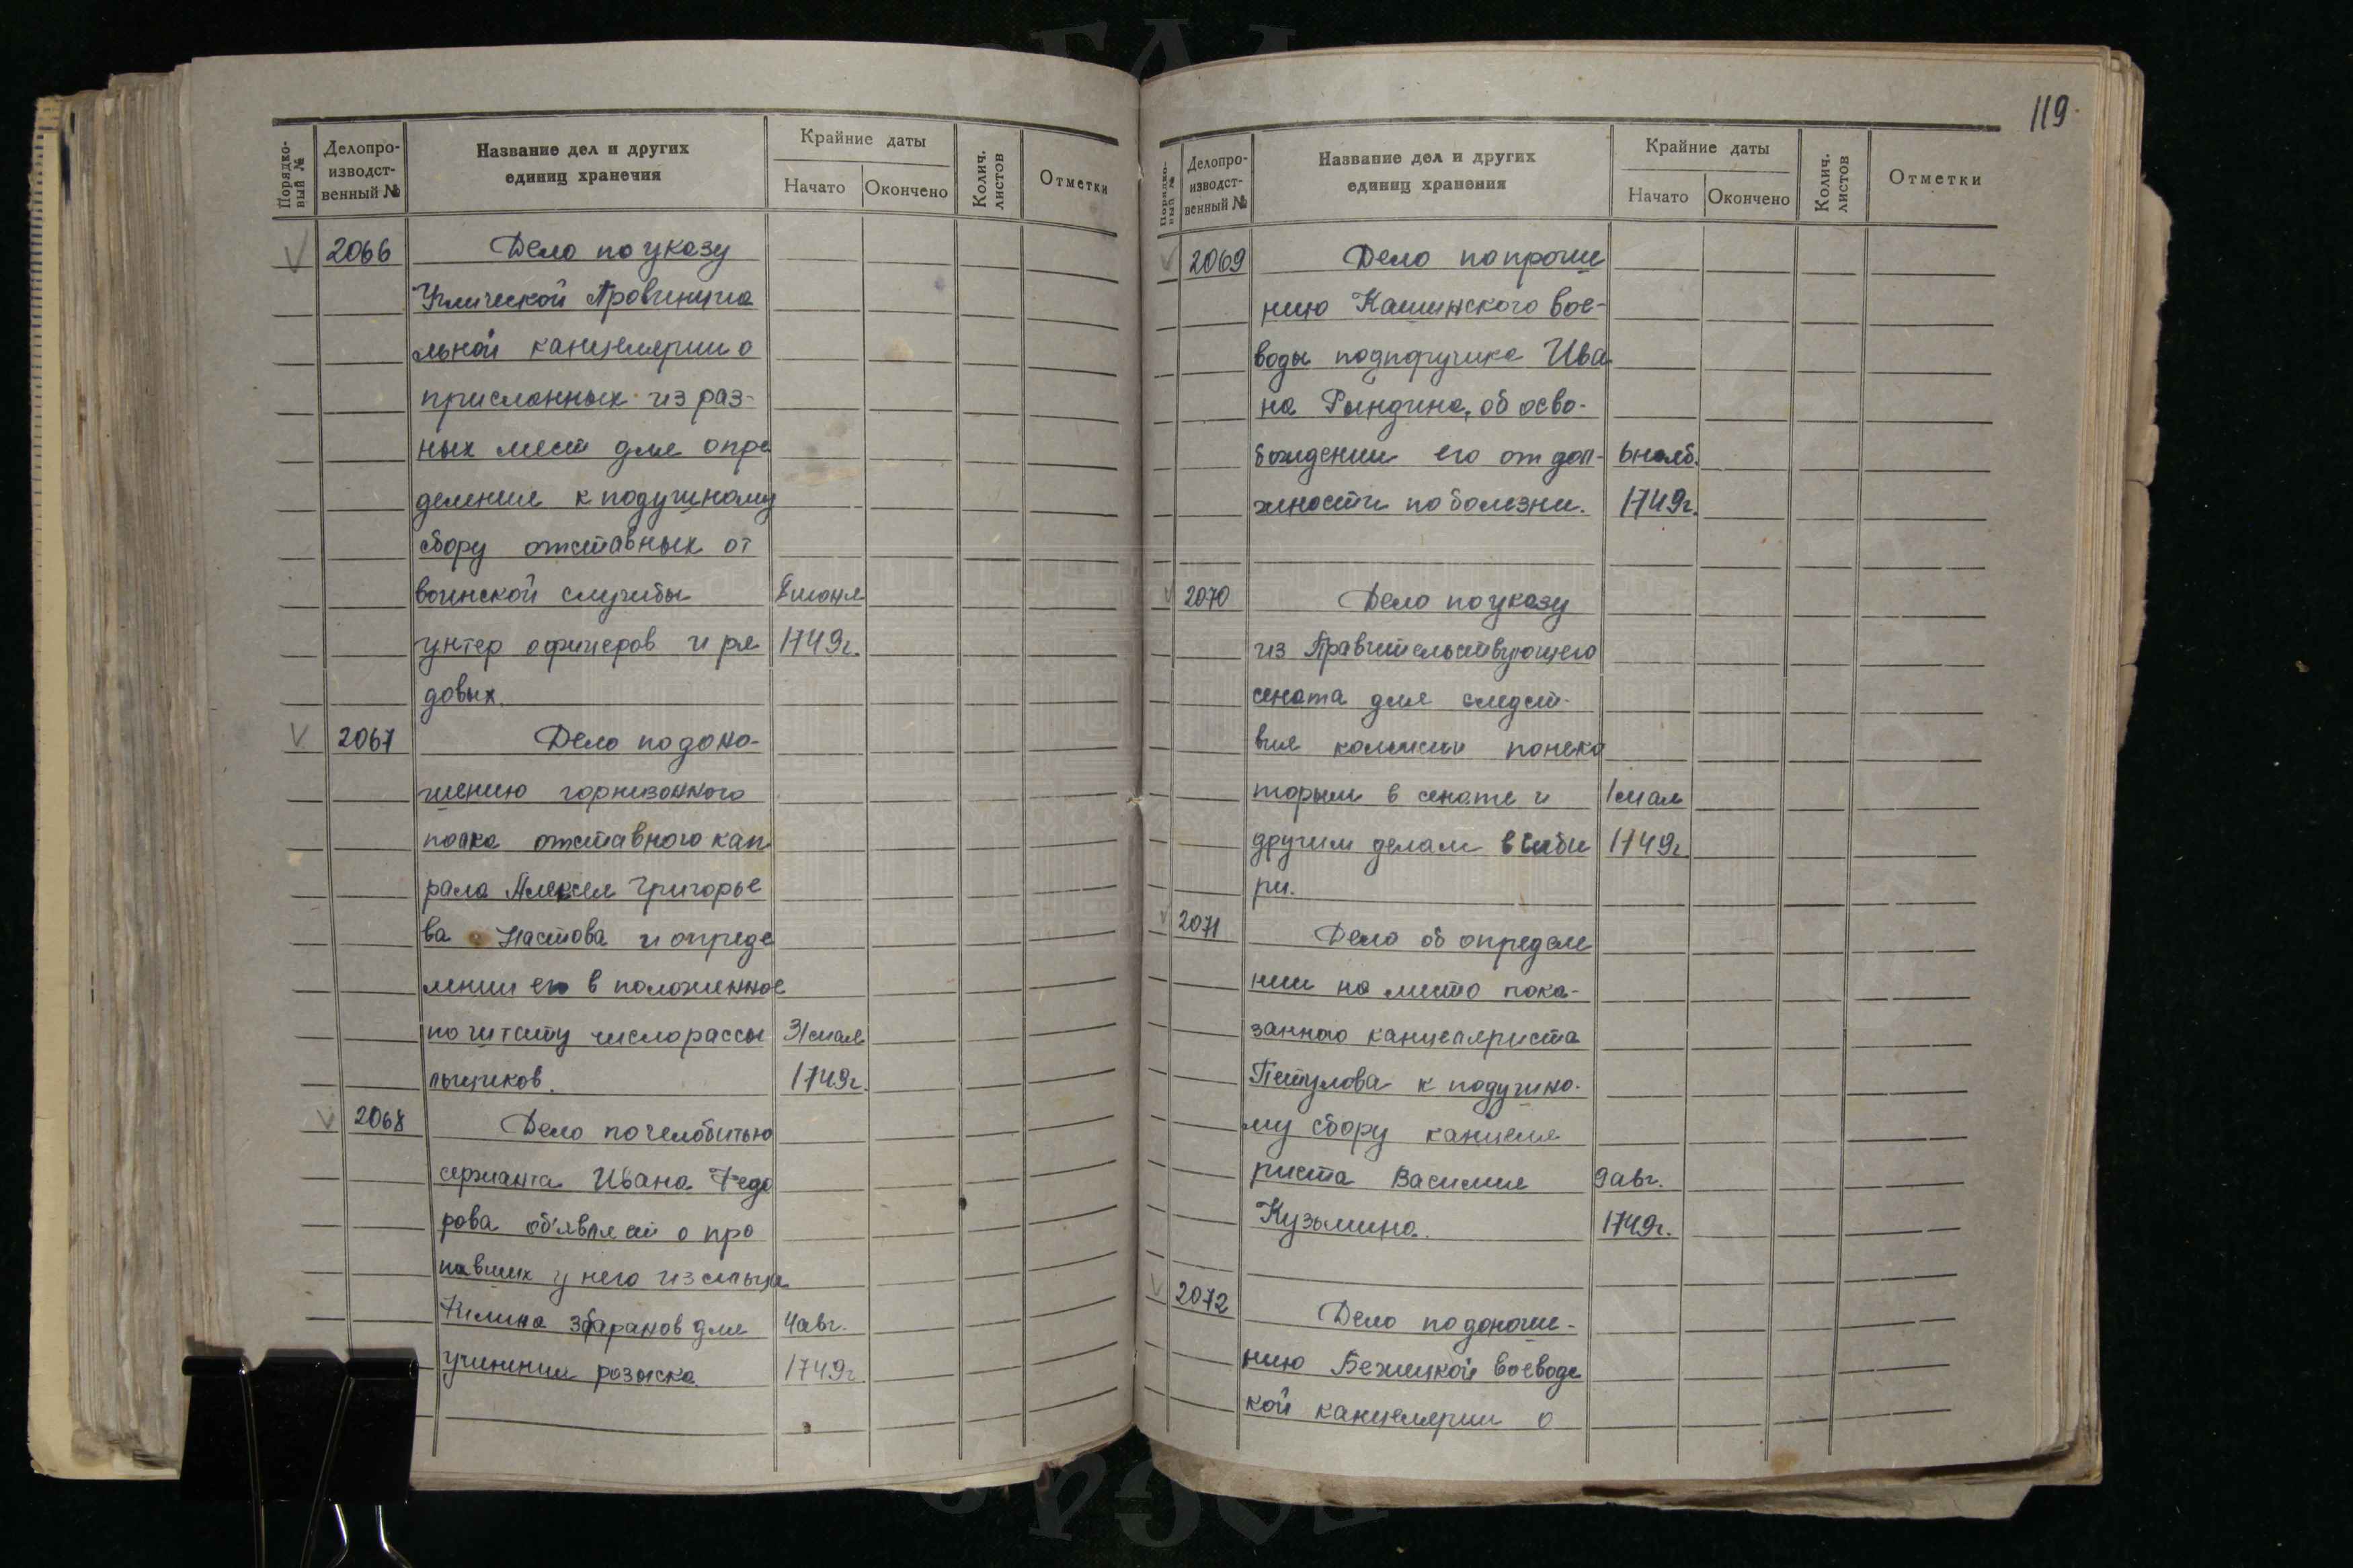 Порядко-
вый №
Делопро-
изводст-
венный №
Название дел и других
единиц хранения
Крайние даты
Начато
Окончено
Колич.
листов
Отметки
2066
Дело по указу
Углической Провинциа
льной канцелярии о
присланных из раз-
ных мест для опре
деления к подушному
сбору отставных от
воинской службы
июня
унтер офицеров и ря
1749г.
довых.
2067
Дело по доно-
шению гарнизонного
полка отставного кап
рала Алексея Григорье
ва Пастова и опреде
лении его в положенное
по штату число рассы
31 мая
льщиков.
1749г.
2068
Дело по челобитью
сержанта Ивана Федо
рова об'явлен о про
павших у него из сльца
Килина 3 баранов для
4 авг.
учинения розыска
1749г.
119
Порядко-
вый №
Делопро-
изводст-
венный №
Название дел и других
единиц хранения
Крайние даты
Начато
Окончено
Колич.
листов
Отметки
2069
Дело по проше
нию Кашинского вое-
воды подпоручика Ива
на Рындина, об осво-
бождении его от дол-
6 нояб.
жности по болезни.
1749г.
2070
Дело по указу
из Правительствующего
сената для следст-
вия комисии по неко
торым в сенате и
1 мая
другим делам в Сиби
1749г.
ри.
2071
Дело об определе
нии на место пока-
занного канцеляриста
Петулова к подушно-
му сбору канцеля
риста Василия
9 авг.
Кузьмина.
1749г.
2072
Дело по доноше-
нию Бежецкой воеводс
кой канцелярии о